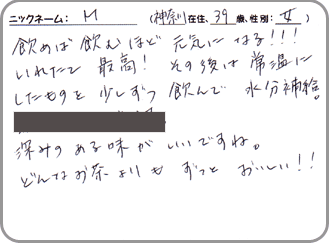 ニックネーム： M （神奈川在住、39歳、性別：女）
飲めば飲むほど元気になる!!!
いれたて最高！その後は常温に
したものを少しずつ飲んで水分補給。
深みのある味がいいですね。
どんなお茶よりもずっとおいしい!!